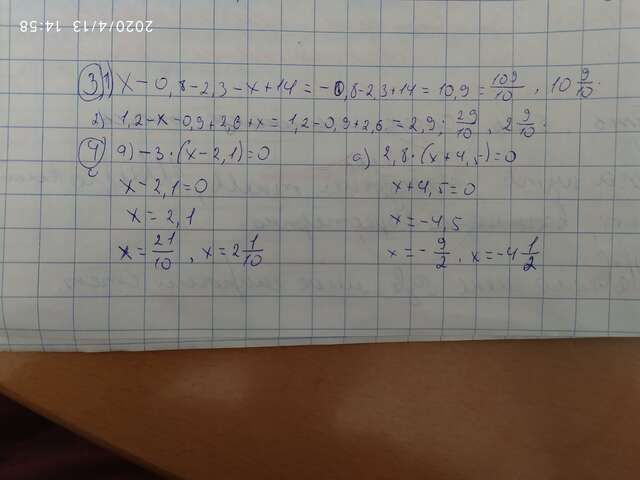 2020/4/13 14:58
③ 1) x-0,8-2,3-x+14=-0,8-2,3+14=10,9=109/10, 10 9/10.
2) 1,2-x-0,9+2,6+x=1,2-0,9+2,6=2,9; 29/10, 2 9/10.
④ а) -3·(x-2,1)=0 а) 2,8·(x+4,5)=0
x-2,1=0 x+4,5=0
x=2,1 x=-4,5
x=21/10, x=2 1/10 x=-9/2, x=-4 1/2